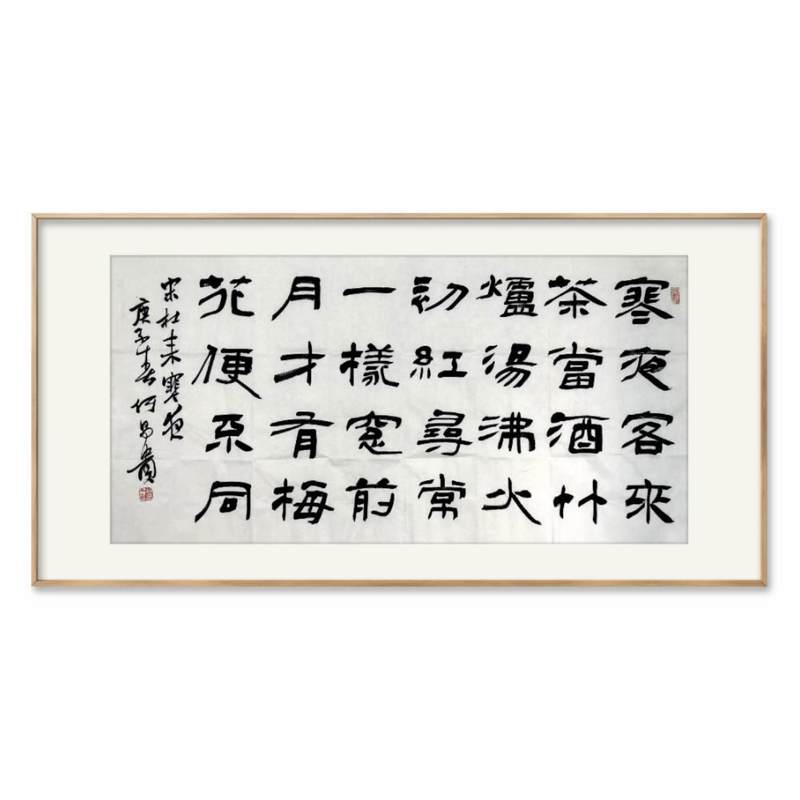 寒夜客來
茶當酒竹
爐湯沸火
初紅尋常
一樣窗前
月才有梅
花便不同
宋杜耒寒夜
庚子年 何昌貴